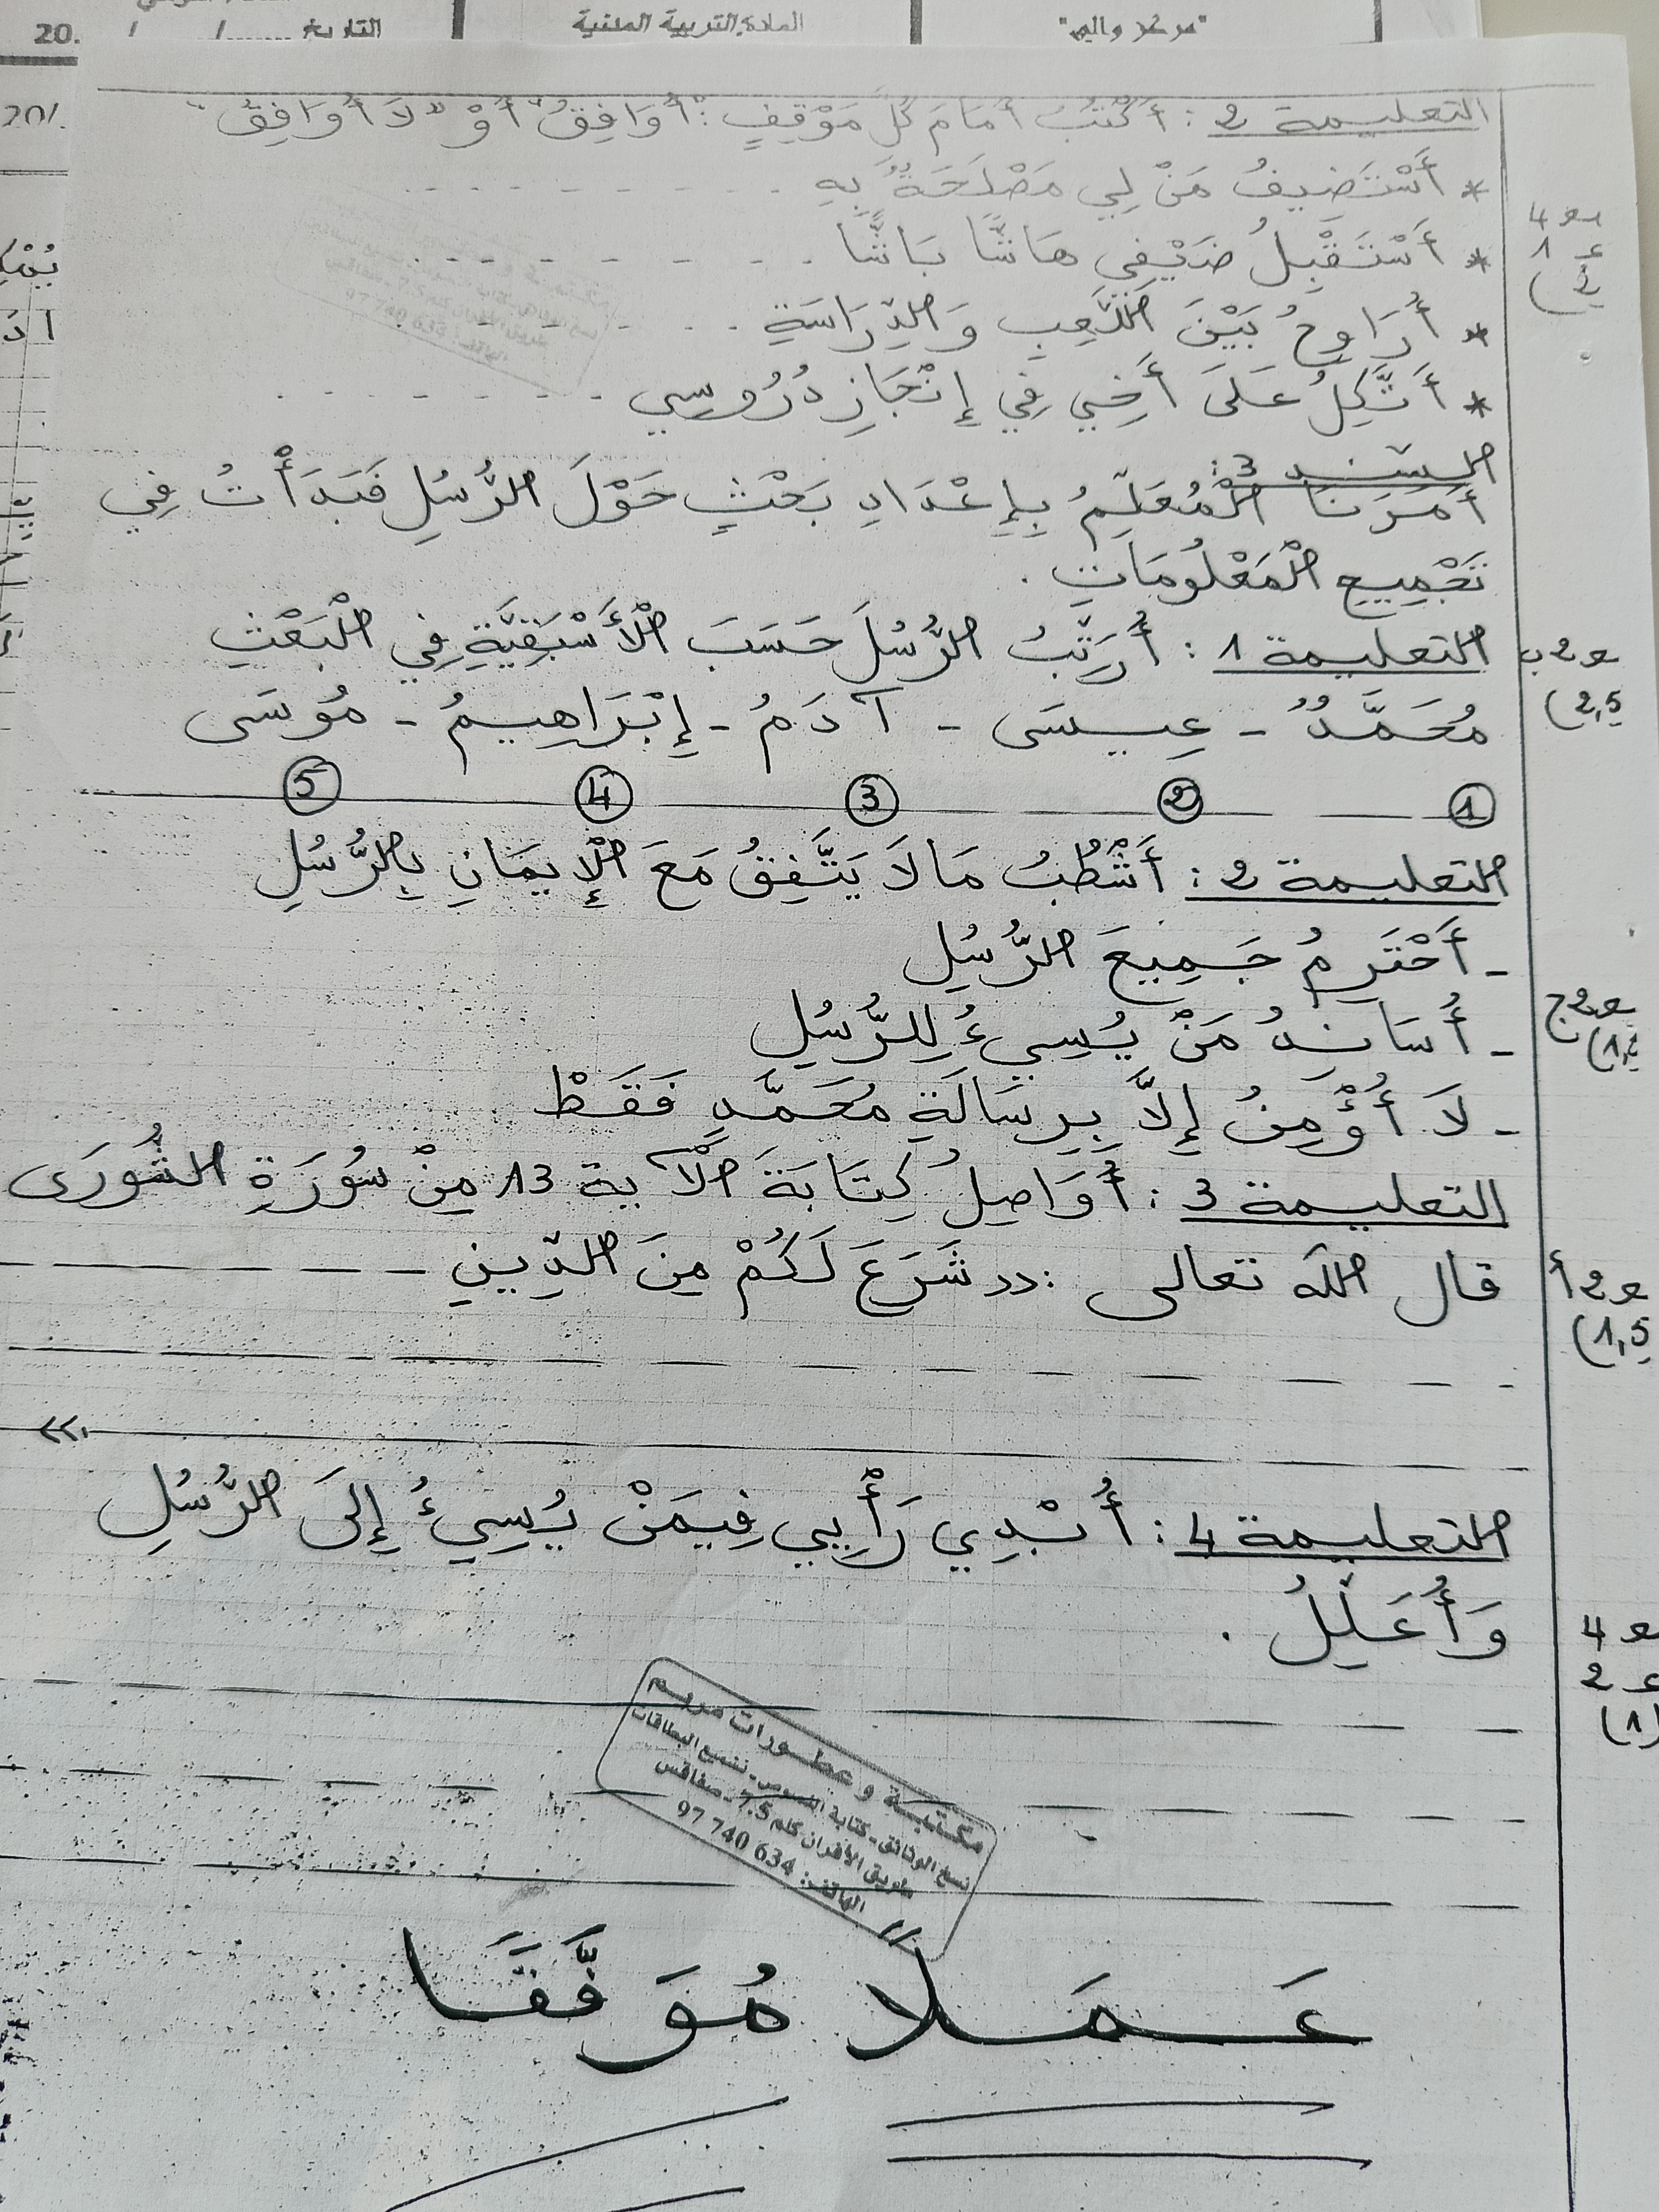 20. / /....... التاريخ
المادة: التربية المدنية
التعليمة 2 : أَكْتُبُ أَمَامَ كُلِّ مَوْقِفٍ : "أُوَافِقُ" أَوْ "لَا أُوَافِقُ"
* أَسْتَضِيفُ مَنْ لِي مَصْلَحَةٌ بِهِ - - - - - - - - -
* أَسْتَقْبِلُ ضَيْفِي هَاشًّا بَاشًّا - - - - - - - - -
* أُرَاوِحُ بَيْنَ اللَّعِبِ وَالدِّرَاسَةِ - - - - - - -
* أَتَّكِلُ عَلَى أَخِي فِي إِنْجَازِ دُرُوسِي - - - - - - - -
م4
ع 1
(2
السند 3:
أَمَرَنَا الْمُعَلِّمُ بِإِعْدَادِ بَحْثٍ حَوْلَ الرُّسُلِ فَبَدَأْتُ فِي
تَجْمِيعِ الْمَعْلُومَاتِ .
التعليمة 1 : أُرَتِّبُ الرُّسُلَ حَسَبَ الْأَسْبَقِيَّةِ فِي الْبَعْثِ
مع2ب
(2,5
مُحَمَّدٌ - عِيسَى - آدَمُ - إِبْرَاهِيمُ - مُوسَى
1 2 3 4 5
التعليمة 2 : أَشْطُبُ مَا لَا يَتَّفِقُ مَعَ الْإِيمَانِ بِالرُّسُلِ
- أَحْتَرِمُ جَمِيعَ الرُّسُلِ
- أُسَانِدُ مَنْ يُسِيءُ لِلرُّسُلِ
- لَا أُؤْمِنُ إِلَّا بِرِسَالَةِ مُحَمَّدٍ فَقَطْ
مع2ج
التعليمة 3 : أُوَاصِلُ كِتَابَةَ الْآية 13 مِنْ سُورَةِ الشُّورَى
قال الله تعالى : ‹‹ شَرَعَ لَكُمْ مِنَ الدِّينِ - - - - - - -
››
مع2أ
(1,5
التعليمة 4 : أُبْدِي رَأْيِي فِيمَنْ يُسِيءُ إِلَى الرُّسُلِ
وَأُعَلِّلُ .
مع4
ع 2
(1)
مكتبة وعطورات مريم
نسخ الوثائق - كتابة النصوص - تلميع البطاقات
طريق الأفران كلم 7.5 - صفاقس
الهاتف: 97 740 634
عَمَلًا مُوَفَّقًا